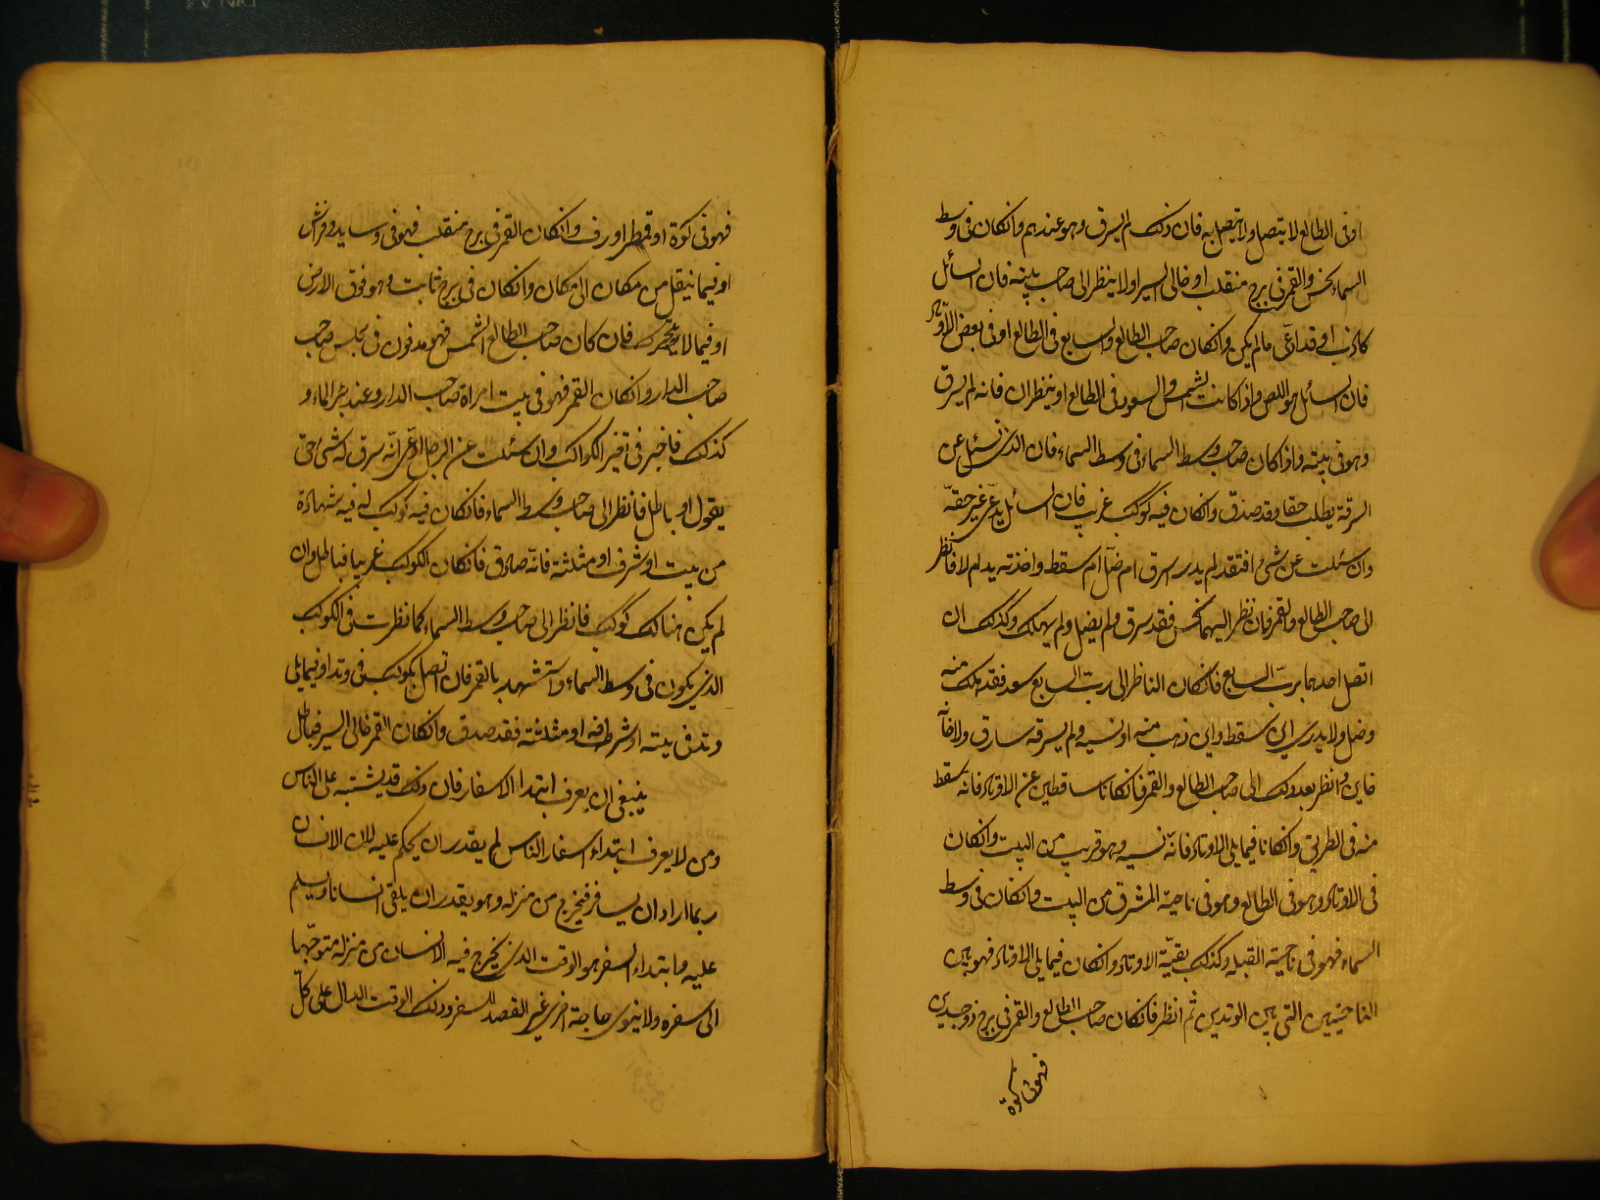 اوفی الطالع لا یتصل ولا یتصل به فان ذلک لم یسرق وهو عندهم وانکان فی وسط
السماء نحس والقمر فی برج منقلب او خالی السیر اولا ینظر الی صاحب بیته فان السائل
کاذب او قد ادعی ما لم یکن وانکان صاحب الطالع والسابع فی الطالع اوفی بعض الاوتاد
فان السائل هو اللص واذا کانت الشمس والسعود فی الطالع او ینظران فانه لم یسرق
وهو فی بیته واذا کان صاحب وسط السماء فی وسط السماء فان الذی سئل عن
السرقة یطلب حقا وقد صدق وانکان فیه کوکب غریب فان السائل یدعی غیر حقه
وان سئلت عن شیء افتقد لم یدر سرق ام ضل ام سقط واخذته ید ام لا فانظر
الی صاحب الطالع والقمر فان نظر الیهما نحس فقد سرق ولم یضل ولم یهلک وکذلک ان
اتصل احدهما برب السابع فانکان الناظر الی رب السابع سعد فقد هلک منه
وضل ولا یدری این سقط واین ذهب منه او نسیه ولم یسرقه سارق ولا خانه
خاین وانظر بعد ذلک الی صاحب الطالع والقمر فانکانا ساقطین عن الاوتاد فانه سقط
منه فی الطریق وانکانا فیما یلی الاوتاد فانه نسیه وهو قریب من البیت وانکان
فی الاوتاد وهو فی الطالع وهو فی ناحیة المشرق من البیت وانکان فی وسط
السماء فهو فی ناحیة القبله وکذلک بقیة الاوتاد وانکان فیما یلی الاوتاد فهو بین
الناحیتین التی بین الوتدین ثم انظر فانکان صاحب الطالع والقمر فی برج ذو جسدین
فهو فی کوة
فهو فی کوة او قمطر او رف وانکان القمر فی برج منقلب فهو فی وساید وفراش
او فیما ینقل من مکان الی مکان وانکان فی برج ثابت وهو فوق الارض
او فیما لا یتحرک فان کان صاحب الطالع الشمس فهو مدفون فی مجلس صاحب
صاحب الدار وانکان القمر فهو فی بیت امراة صاحب الدار وعند بئر الماء و
کذلک فاخبر فی تغیر الکواکب وان سئلت عن الرجل ادعی انه سرق له شیء حق
یقول او باطل فانظر الی صاحب وسط السماء فانکان فیه کوکب له فیه شهادة
من بیت او شرف او مثلثة فانه صادق فانکان الکوکب غریبا فباطل وان
لم یکن هنالک کوکب فانظر الی صاحب وسط السماء کما نظرت فی الکوکب
الذی یکون فی وسط السماء واستشهد بالقمر فان اتصل بکوکب فی وتد او فیما یلی
وتد فی بیته او شرفه او مثلثته فقد صدق وانکان القمر خالی السیر فباطل
ینبغی ان یعرف ابتداء الاسفار فان ذلک قد یشتبه علی الناس
ومن لا یعرف ابتداء اسفار الناس لم یقدر ان یحکم علیه لان الانسان
ربما اراد ان یسافر فیخرج من منزله وهو یقدر ان یلقی انسانا ویسلم
علیه وابتداء السفر هو الوقت الذی یخرج فیه الانسان من منزله متوجها
الی سفره ولا ینوی حاجة اخری غیر القصد للسفر وذلک الوقت الدال علی کل